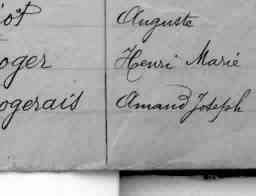 ot Auguste
oger Henri Marie
ogerais Amand Joseph